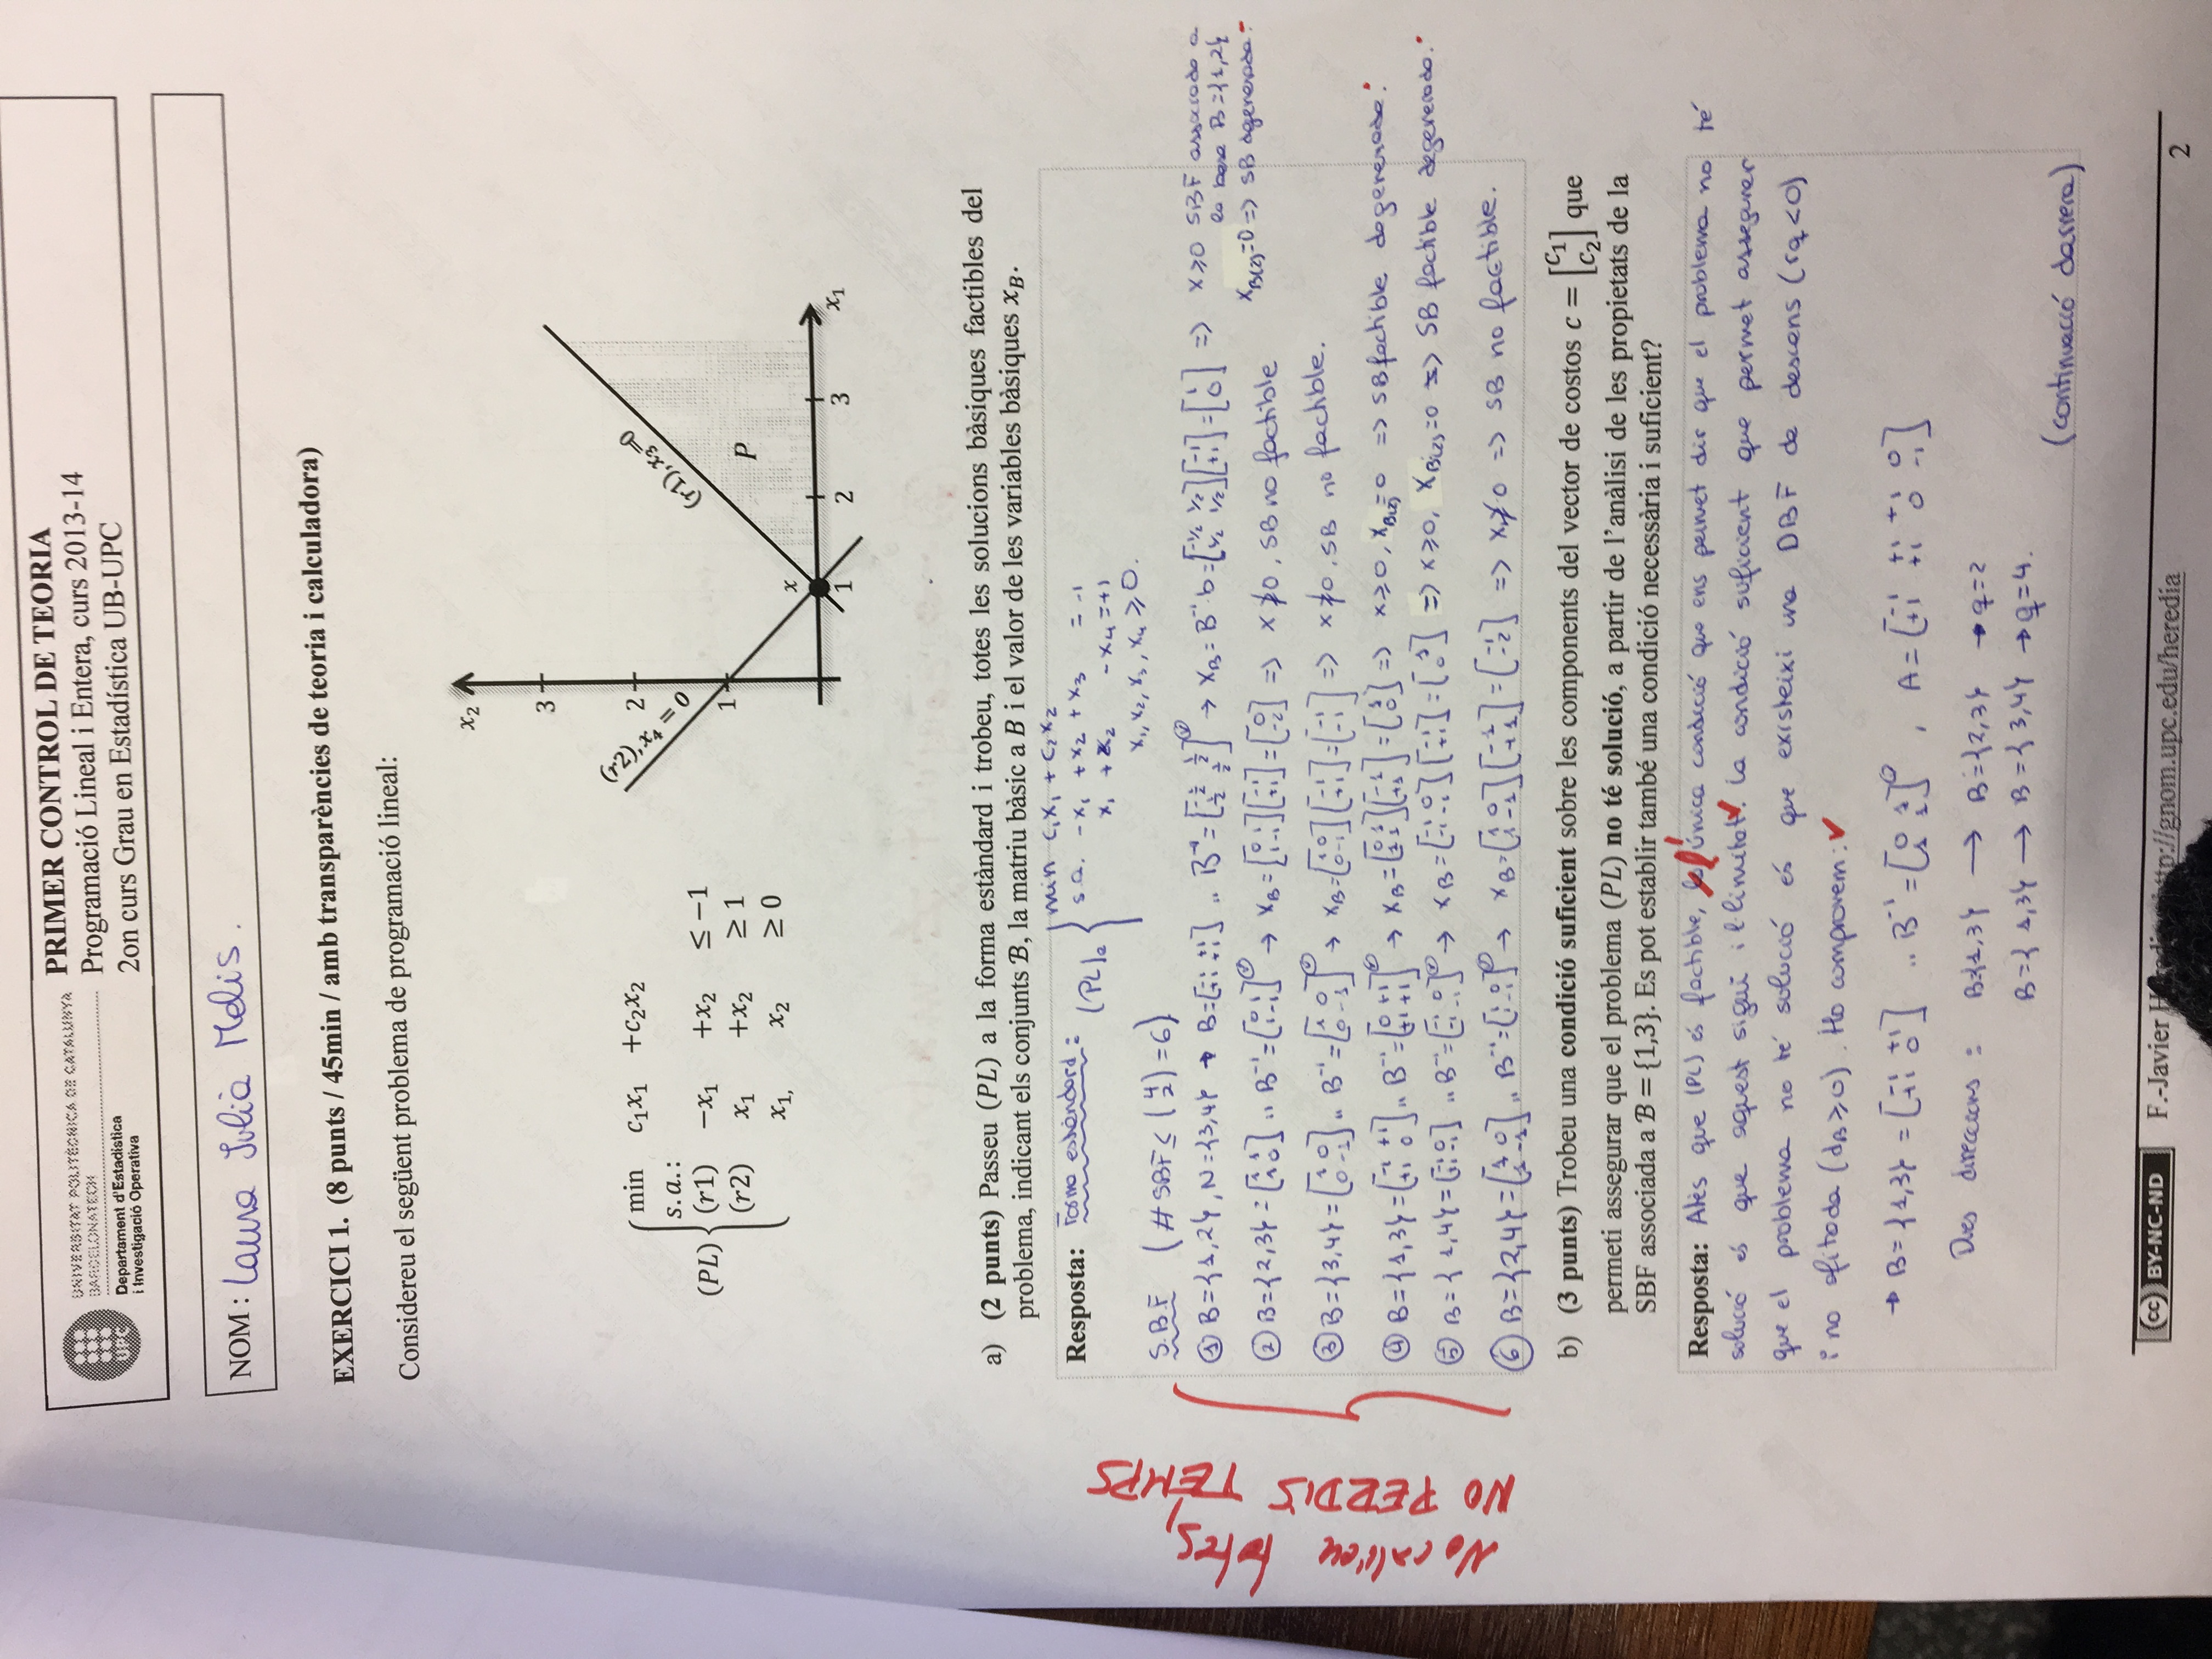 UNIVERSITAT POLITÈCNICA DE CATALUNYA
BARCELONATECH
UPC
Departament d'Estadística
i Investigació Operativa
PRIMER CONTROL DE TEORIA
Programació Lineal i Entera, curs 2013-14
2on curs Grau en Estadística UB-UPC
NOM : Laura Julià Melis.
EXERCICI 1. (8 punts / 45min / amb transparències de teoria i calculadora)
Considereu el següent problema de programació lineal:
(PL) { min c₁x₁ +c₂x₂
s.a.:
(r1) −x₁ +x₂ ≤ −1
(r2) x₁ +x₂ ≥ 1
x₁, x₂ ≥ 0
x₂
3
2
1
(r2), x₄ = 0
(r1), x₃=0
P
x
1 2 3 x₁
a) (2 punts) Passeu (PL) a la forma estàndard i trobeu, totes les solucions bàsiques factibles del
problema, indicant els conjunts ℬ, la matriu bàsic a B i el valor de les variables bàsiques x_B.
Resposta: Forma estàndard: (PL)e { min c₁x₁ + c₂x₂
s.a. -x₁ +x₂ +x₃ = -1
x₁ +x₂ -x₄ = +1
x₁, x₂, x₃, x₄ ⩾ 0.
S.B.F (# SBF ≤ (4 2) = 6)
① B={1,2}, N={3,4} → B=[-1 +1; +1 +1] .. B⁻¹=[-1/2 1/2; 1/2 1/2] → x_B = B⁻¹·b = [-1/2 1/2; 1/2 1/2][-1; +1] = [1; 0] => x⩾0 SBF associada a
la base B={1,2}
x_B(2)=0 => SB degenerada.
② B={2,3} = [1 1; 1 0] .. B⁻¹=[0 1; 1 -1] → x_B=[0 1; 1 -1][-1; +1]=[0; -2] => x ⩾̸ 0, SB no factible
③ B={3,4} = [1 0; 0 -1] .. B⁻¹=[1 0; 0 -1] → x_B=[1 0; 0 -1][-1; +1]=[-1; -1] => x ⩾̸ 0, SB no factible.
④ B={1,3} = [-1 +1; +1 0] .. B⁻¹=[0 +1; +1 +1] → x_B=[0 1; 1 1][-1; +1]=[1; 0] => x⩾0, x_B(2)=0 => SB factible degenerada.
⑤ B={1,4} = [-1 0; 1 -1] .. B⁻¹=[-1 0; -1 -1] → x_B=[-1 0; -1 -1][-1; +1]=[1; 0] => x⩾0, x_B(2)=0 => SB factible degenerada.
⑥ B={2,4} = [1 0; 1 -1] .. B⁻¹=[1 0; 1 -1] → x_B=[1 0; 1 -1][-1; +1]=[-1; -2] => x ⩾̸ 0 => SB no factible.
No calien totes,
NO PERDIS TEMPS
b) (3 punts) Trobeu una condició suficient sobre les components del vector de costos c = [c₁; c₂] que
permeti assegurar que el problema (PL) no té solució, a partir de l'anàlisi de les propietats de la
SBF associada a ℬ = {1,3}. Es pot establir també una condició necessària i suficient?
Resposta: Atès que (PL) és factible, l'única condició que ens permet dir que el problema no té
solució és que aquest sigui il·limitat. La condició suficient que permet assegurar
que el problema no té solució és que existeixi una DBF de descens (rq <0)
i no afitada (d_B ⩾0). Ho comprovem:
→ B={1,3} = [-1 +1; +1 0] .. B⁻¹=[0 1; 1 1], A=[-1 +1 +1 0; +1 +1 0 -1]
Dues direccions: B={1,3} → B={2,3} → q=2
B={1,3} → B={3,4} → q=4.
(continuació darrera)
cc BY-NC-ND
F.-Javier ttp://gnom.upc.edu/heredia
2